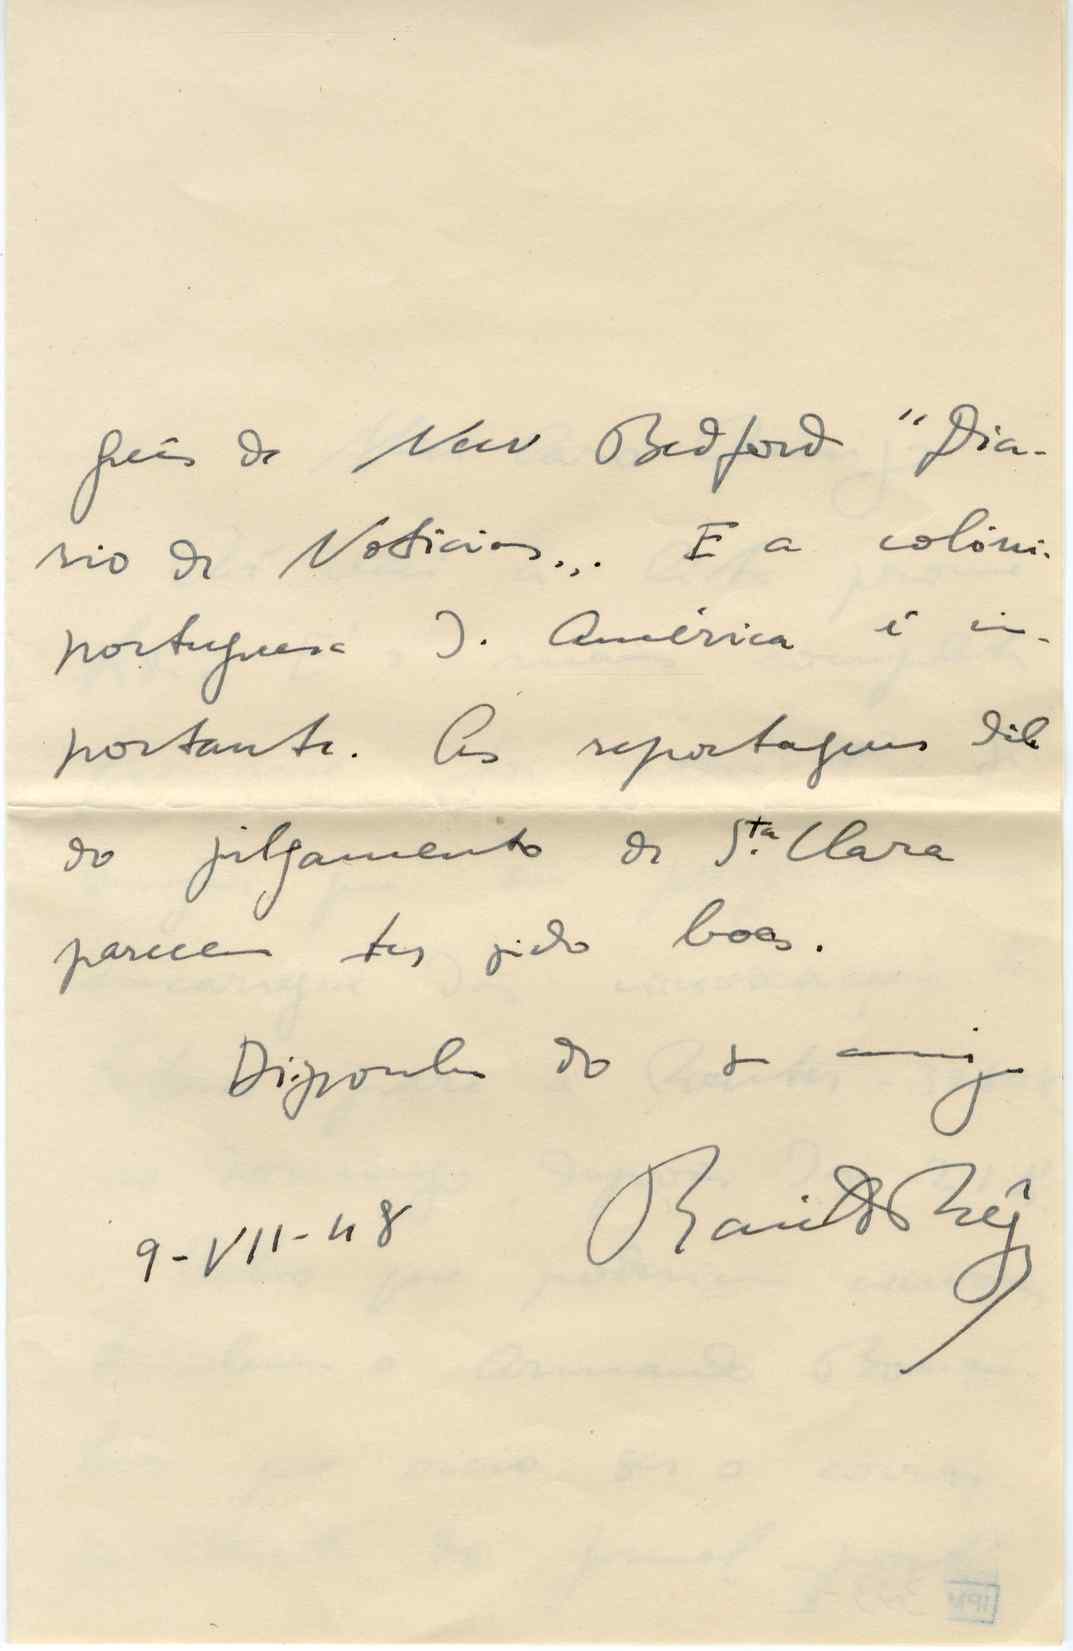 guês de New Bedford "Diá-
rio de Notícias... E a colóni.
portuguesa d. América é im-
portante. As reportagens dele
do julgamento de S.ta Clara
parecem ter sido boas.
Disponha do amigo
9-VII-48
Raul Rêgo